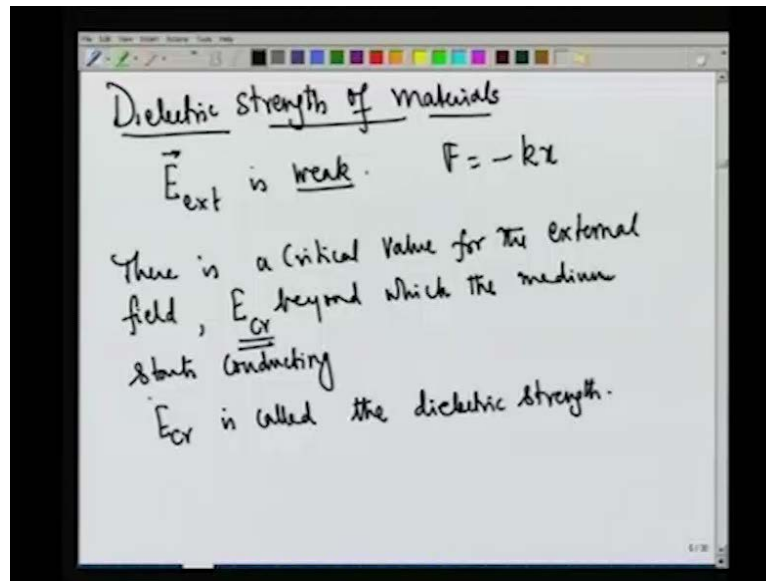 Dielectric strength of materials
E⃗ext is weak. F = -kx
There is a critical value for the external
field, Ecr beyond which the medium
starts conducting
Ecr is called the dielectric strength.